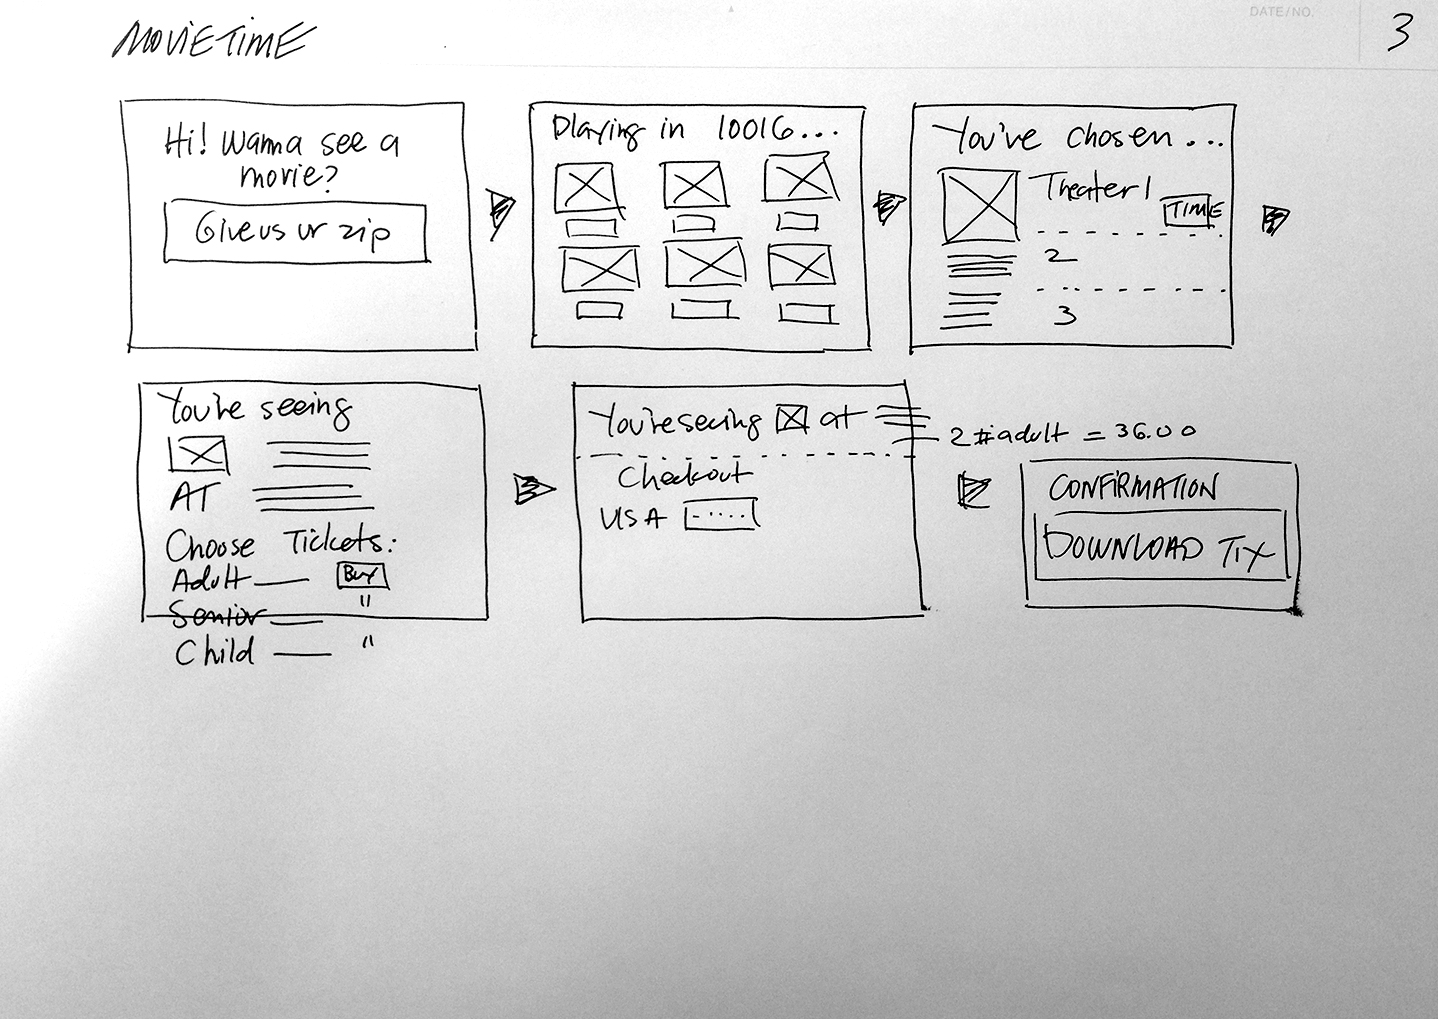 DATE/NO.
3
MOVIETIME
Hi! Wanna see a
movie?
Give us ur zip
Playing in 10016...
You've chosen...
Theater 1
TIME
2
3
You're seeing
AT
Choose Tickets:
Adult
Buy
Senior
"
Child
"
You're seeing
at
2 # adult = 36.00
Checkout
USA
CONFIRMATION
DOWNLOAD TIX